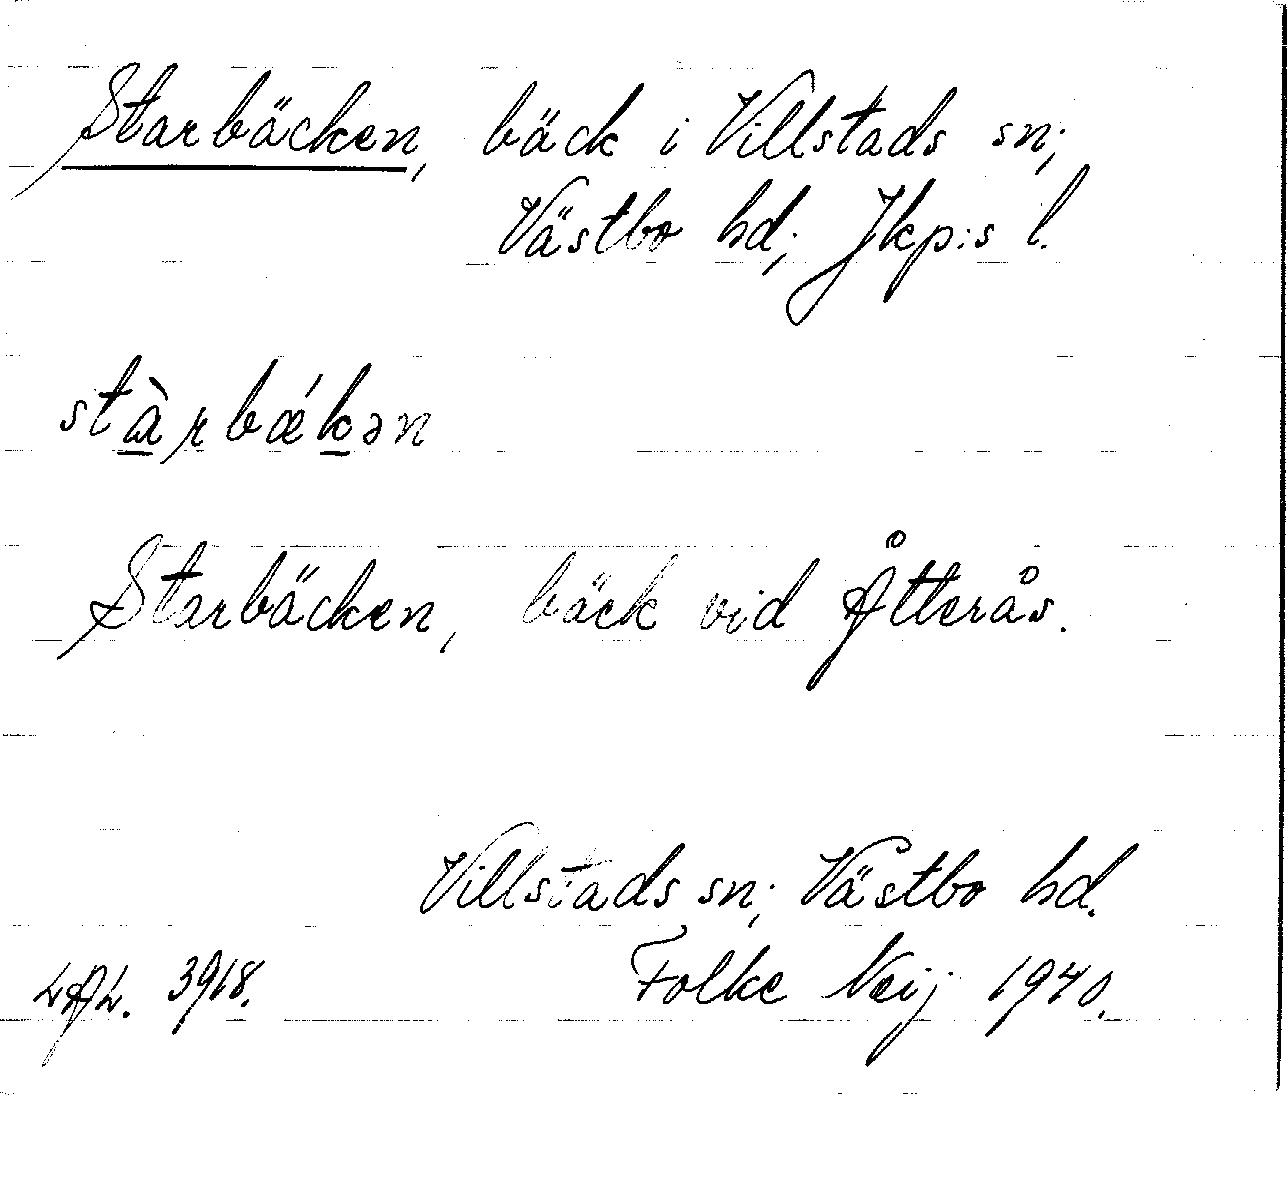 Starbäcken, bäck i Villstads sn;
Västbo hd; Jkp:s l.
stàrbǽkən
Starbäcken, bäck vid Åtterås.
Villstads sn; Västbo hd.
LAL. 3918. Folke Neij 1940.